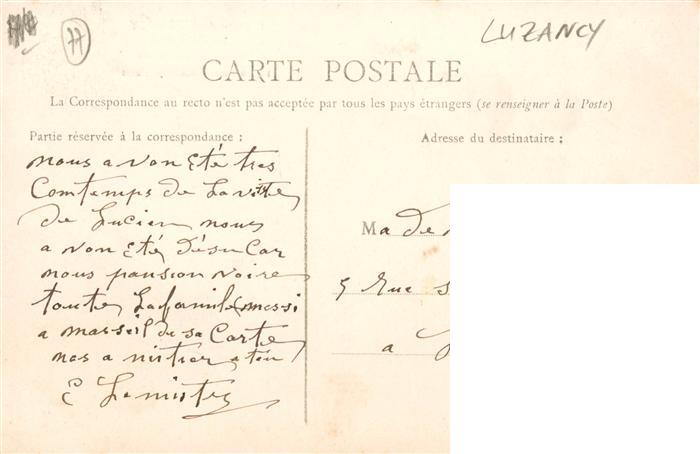 77
LUZANCY
CARTE POSTALE
La Correspondance au recto n'est pas acceptée par tous les pays étrangers (se renseigner à la Poste)
Partie réservée à la correspondance :
nous a von Eté tres
Comtemps de La viste
de Lucien nous
a von Eté désu Car
nous pansion voire
toute La famile messi
a marseil de sa Carte
E Lemistre
Adresse du destinataire :
Ma de
5 Rue
a